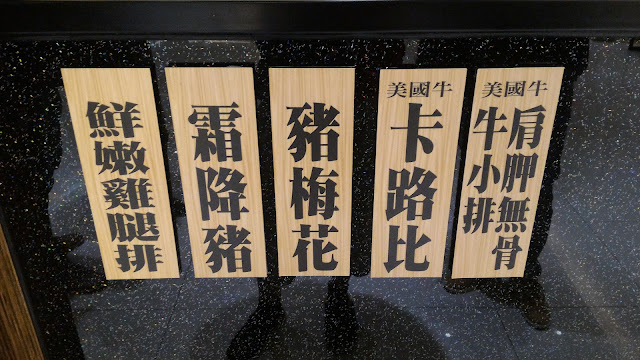 美國牛
肩胛無骨
牛小排
美國牛
卡路比
豬梅花
霜降豬
鮮嫩雞腿排